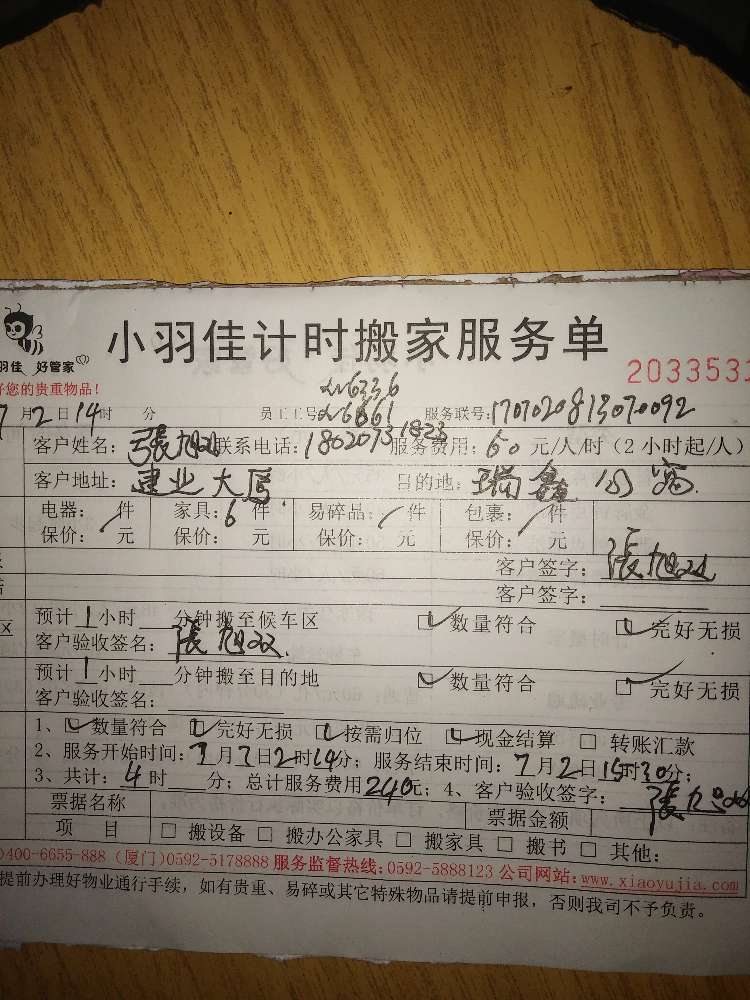 小羽佳计时搬家服务单
羽佳 好管家
好您的贵重物品！
2033533
7月2日14时 分 员工工号 6336 6661 服务联号：1707020813070092
客户姓名：張旭双 联系电话：18020731823 服务费用：60元/人/时（2小时起/人）
客户地址：建业大厦 目的地：瑞鑫
电器： / 件 家具：6件 易碎品： / 件 包裹： / 件
保价： 元 保价： 元 保价： 元 保价： 元
客户签字：張旭双
客户签字：
预计1小时 分钟搬至候车区 数量符合 完好无损
区
客户验收签名：張旭双
预计1小时 分钟搬至目的地 数量符合 完好无损
客户验收签名：
1、数量符合 完好无损 按需归位 现金结算 转账汇款
2、服务开始时间：7月 日 14 分；服务结束时间：7月2日 时30分；
3、共计：4时 分；总计服务费用240元；4、客户验收签字：張旭双
票据名称 票据金额
项 目 搬设备 搬办公家具 搬家具 搬书 其他：
0400-6655-888（厦门）0592-5178888 服务监督热线：0592-5888123 公司网站：www.xiaoyujia.com
提前办理好物业通行手续，如有贵重、易碎或其它特殊物品请提前申报，否则我司不予负责。